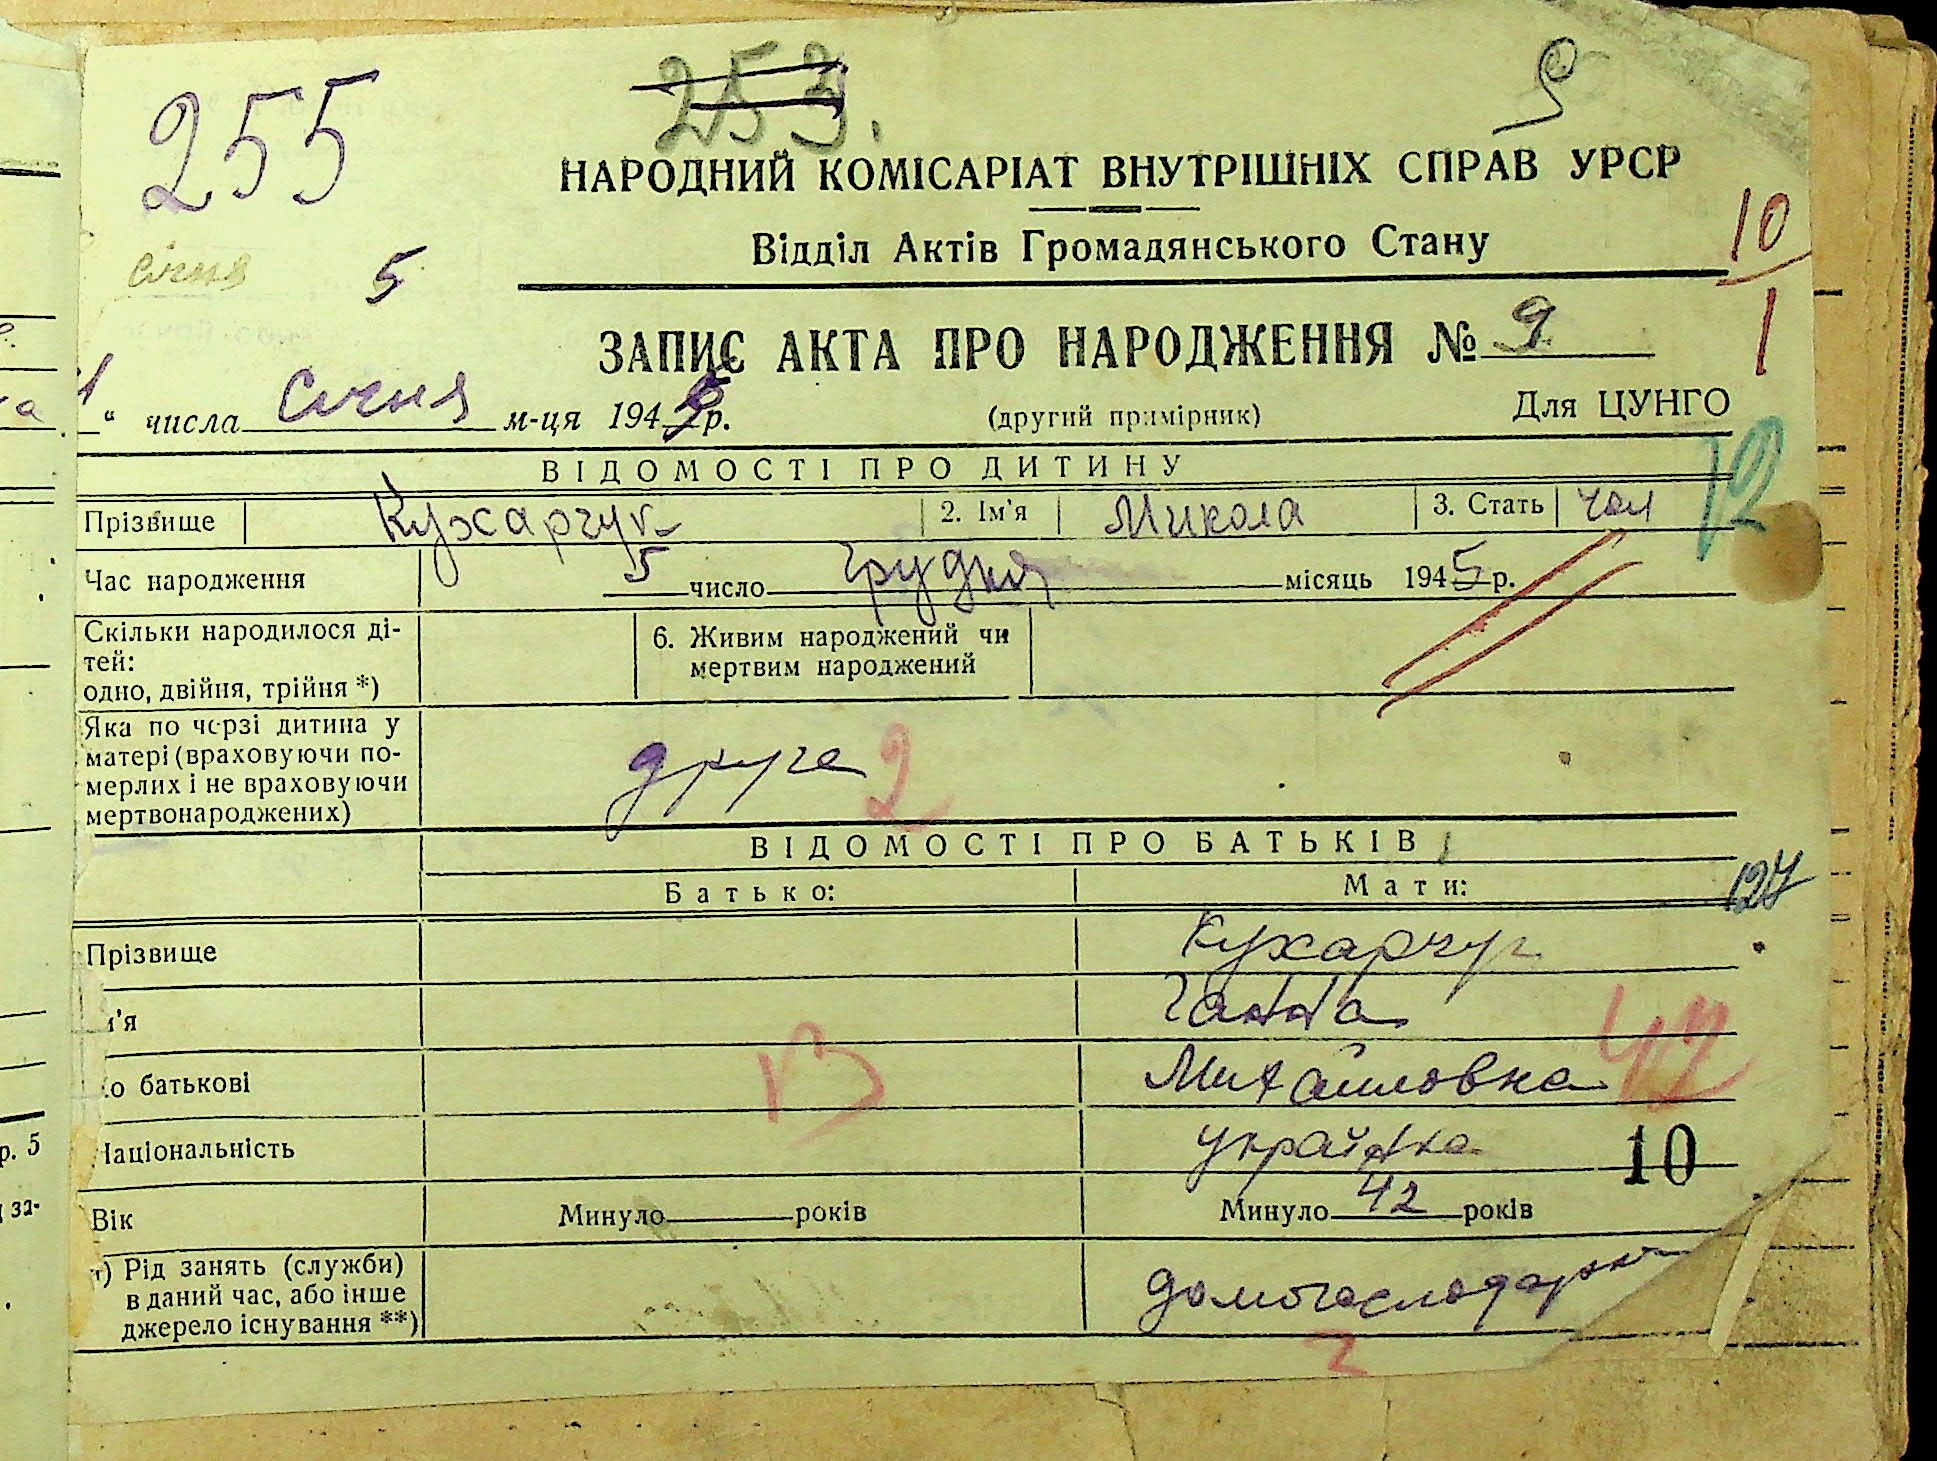 255
253.
9
НАРОДНИЙ КОМІСАРІАТ ВНУТРІШНІХ СПРАВ УРСР
Відділ Актів Громадянського Стану
10
1
січня 5
ЗАПИС АКТА ПРО НАРОДЖЕННЯ № 9
“ числа січня м-ця 194 р. (другий примірник) Для ЦУНГО
12
ВІДОМОСТІ ПРО ДИТИНУ
Прізвище Кухарчук 2. Ім'я Микола 3. Стать чол
Час народження 5 число грудня місяць 1945 р.
Скільки народилося ді-
тей:
одно, двійня, трійня *)
6. Живим народжений чи
мертвим народжений
Яка по черзі дитина у
матері (враховуючи по-
мерлих і не враховуючи
мертвонароджених)
друга 2
ВІДОМОСТІ ПРО БАТЬКІВ
Батько: Мати:
127
Прізвище Кухарчук
м'я Ганна
о батькові Михайловна 42
13
Національність українка
10
Вік Минуло років Минуло 42 років
т) Рід занять (служби)
в даний час, або інше
джерело існування **)
домогосподарка
2
р. 5
за-